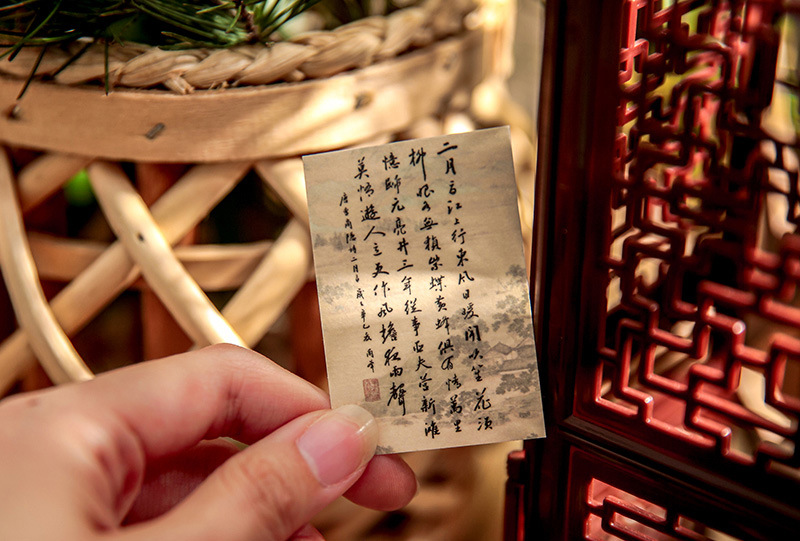 二月二日江上行東風日暖聞吹笙花須
柳眼各無賴紫蝶黄蜂俱有情萬里
憶歸元亮井三年從事亞夫營新灘
莫悟遊人意更作風檐夜雨聲
唐李商隱詩二月二日